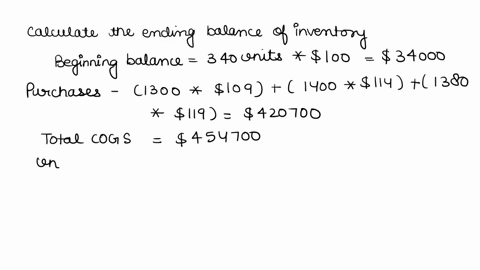 Calculate the ending balance of inventory
Beginning balance = 340 units * $100 = $34000
Purchases - (1300 * $109) + (1400 * $114) + (1380
* $119) = $420700
Total COGS = $454700
Un